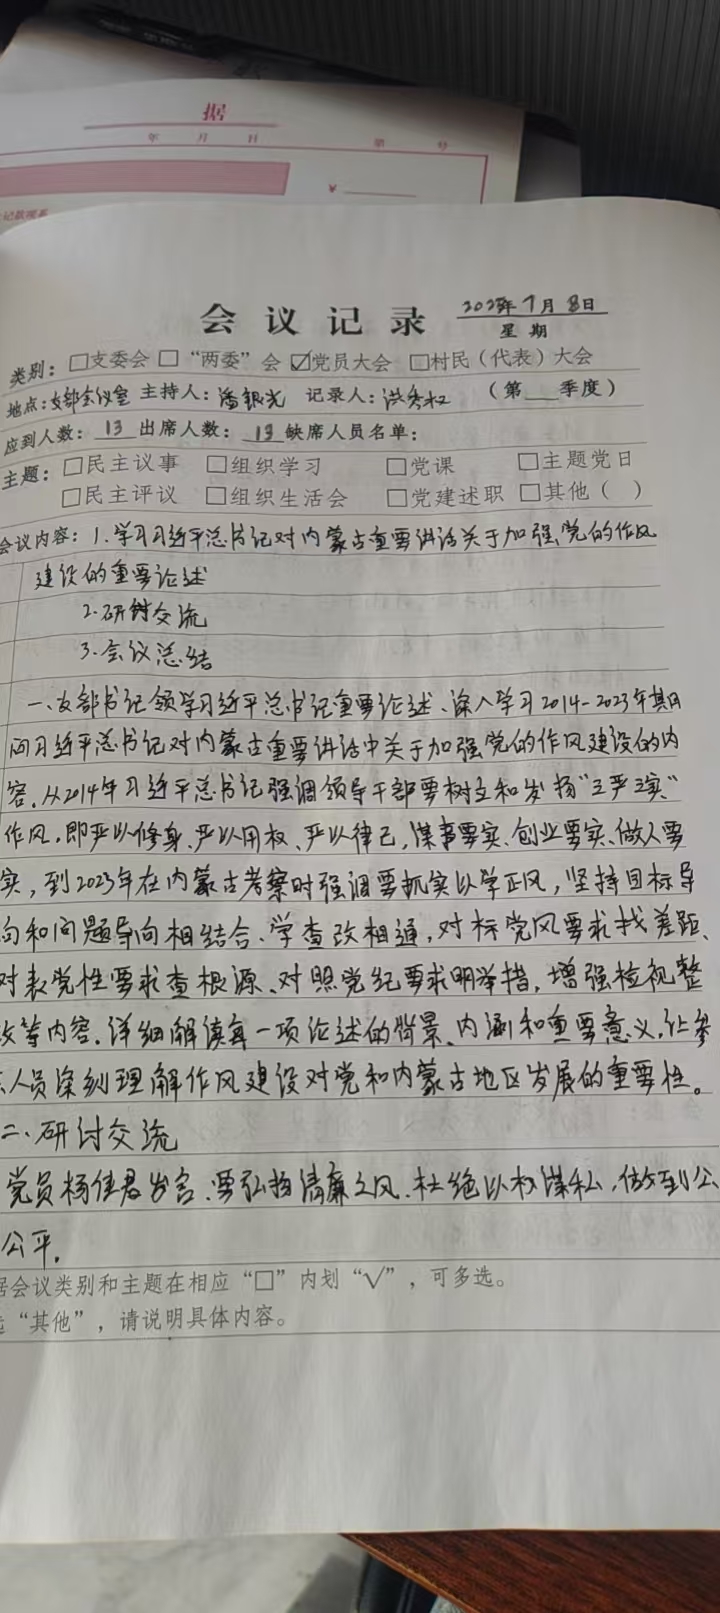 据
年 月 日 第 号
¥
会议记录 2025年7月8日
星期
类别：□支委会 □“两委”会 ☑党员大会 □村民（代表）大会
地点：支部会议室 主持人：潘银光 记录人：洪秀权 （第 季度）
应到人数：13 出席人数：13 缺席人员名单：
主题：□民主议事 □组织学习 □党课 □主题党日
□民主评议 □组织生活会 □党建述职 □其他（ ）
会议内容：1.学习习近平总书记对内蒙古重要讲话关于加强党的作风
建设的重要论述
2.研讨交流
3.会议总结
一、支部书记领学习近平总书记重要论述、深入学习2014-2023年其日
间习近平总书记对内蒙古重要讲话中关于加强党的作风建设的内
容。从2014年习近平总书记强调领导干部要树立和发扬“三严三实”
作风，即严以修身、严以用权、严以律己，谋事要实、创业要实、做人要
实，到2023年在内蒙古考察时强调要抓实以学正风，坚持目标导
向和问题导向相结合、学查改相通，对标党风要求找差距、
对表党性要求查根源、对照党纪要求明举措，增强检视整
改等内容。详细解读每一项论述的背景、内涵和重要意义，让参
人员深刻理解作风建设对党和内蒙古地区发展的重要性。
二、研讨交流
党员杨佳君发言、要弘扬清廉之风、杜绝以权谋私，做到公
公平。
据会议类别和主题在相应“□”内划“√”，可多选。
“其他”，请说明具体内容。